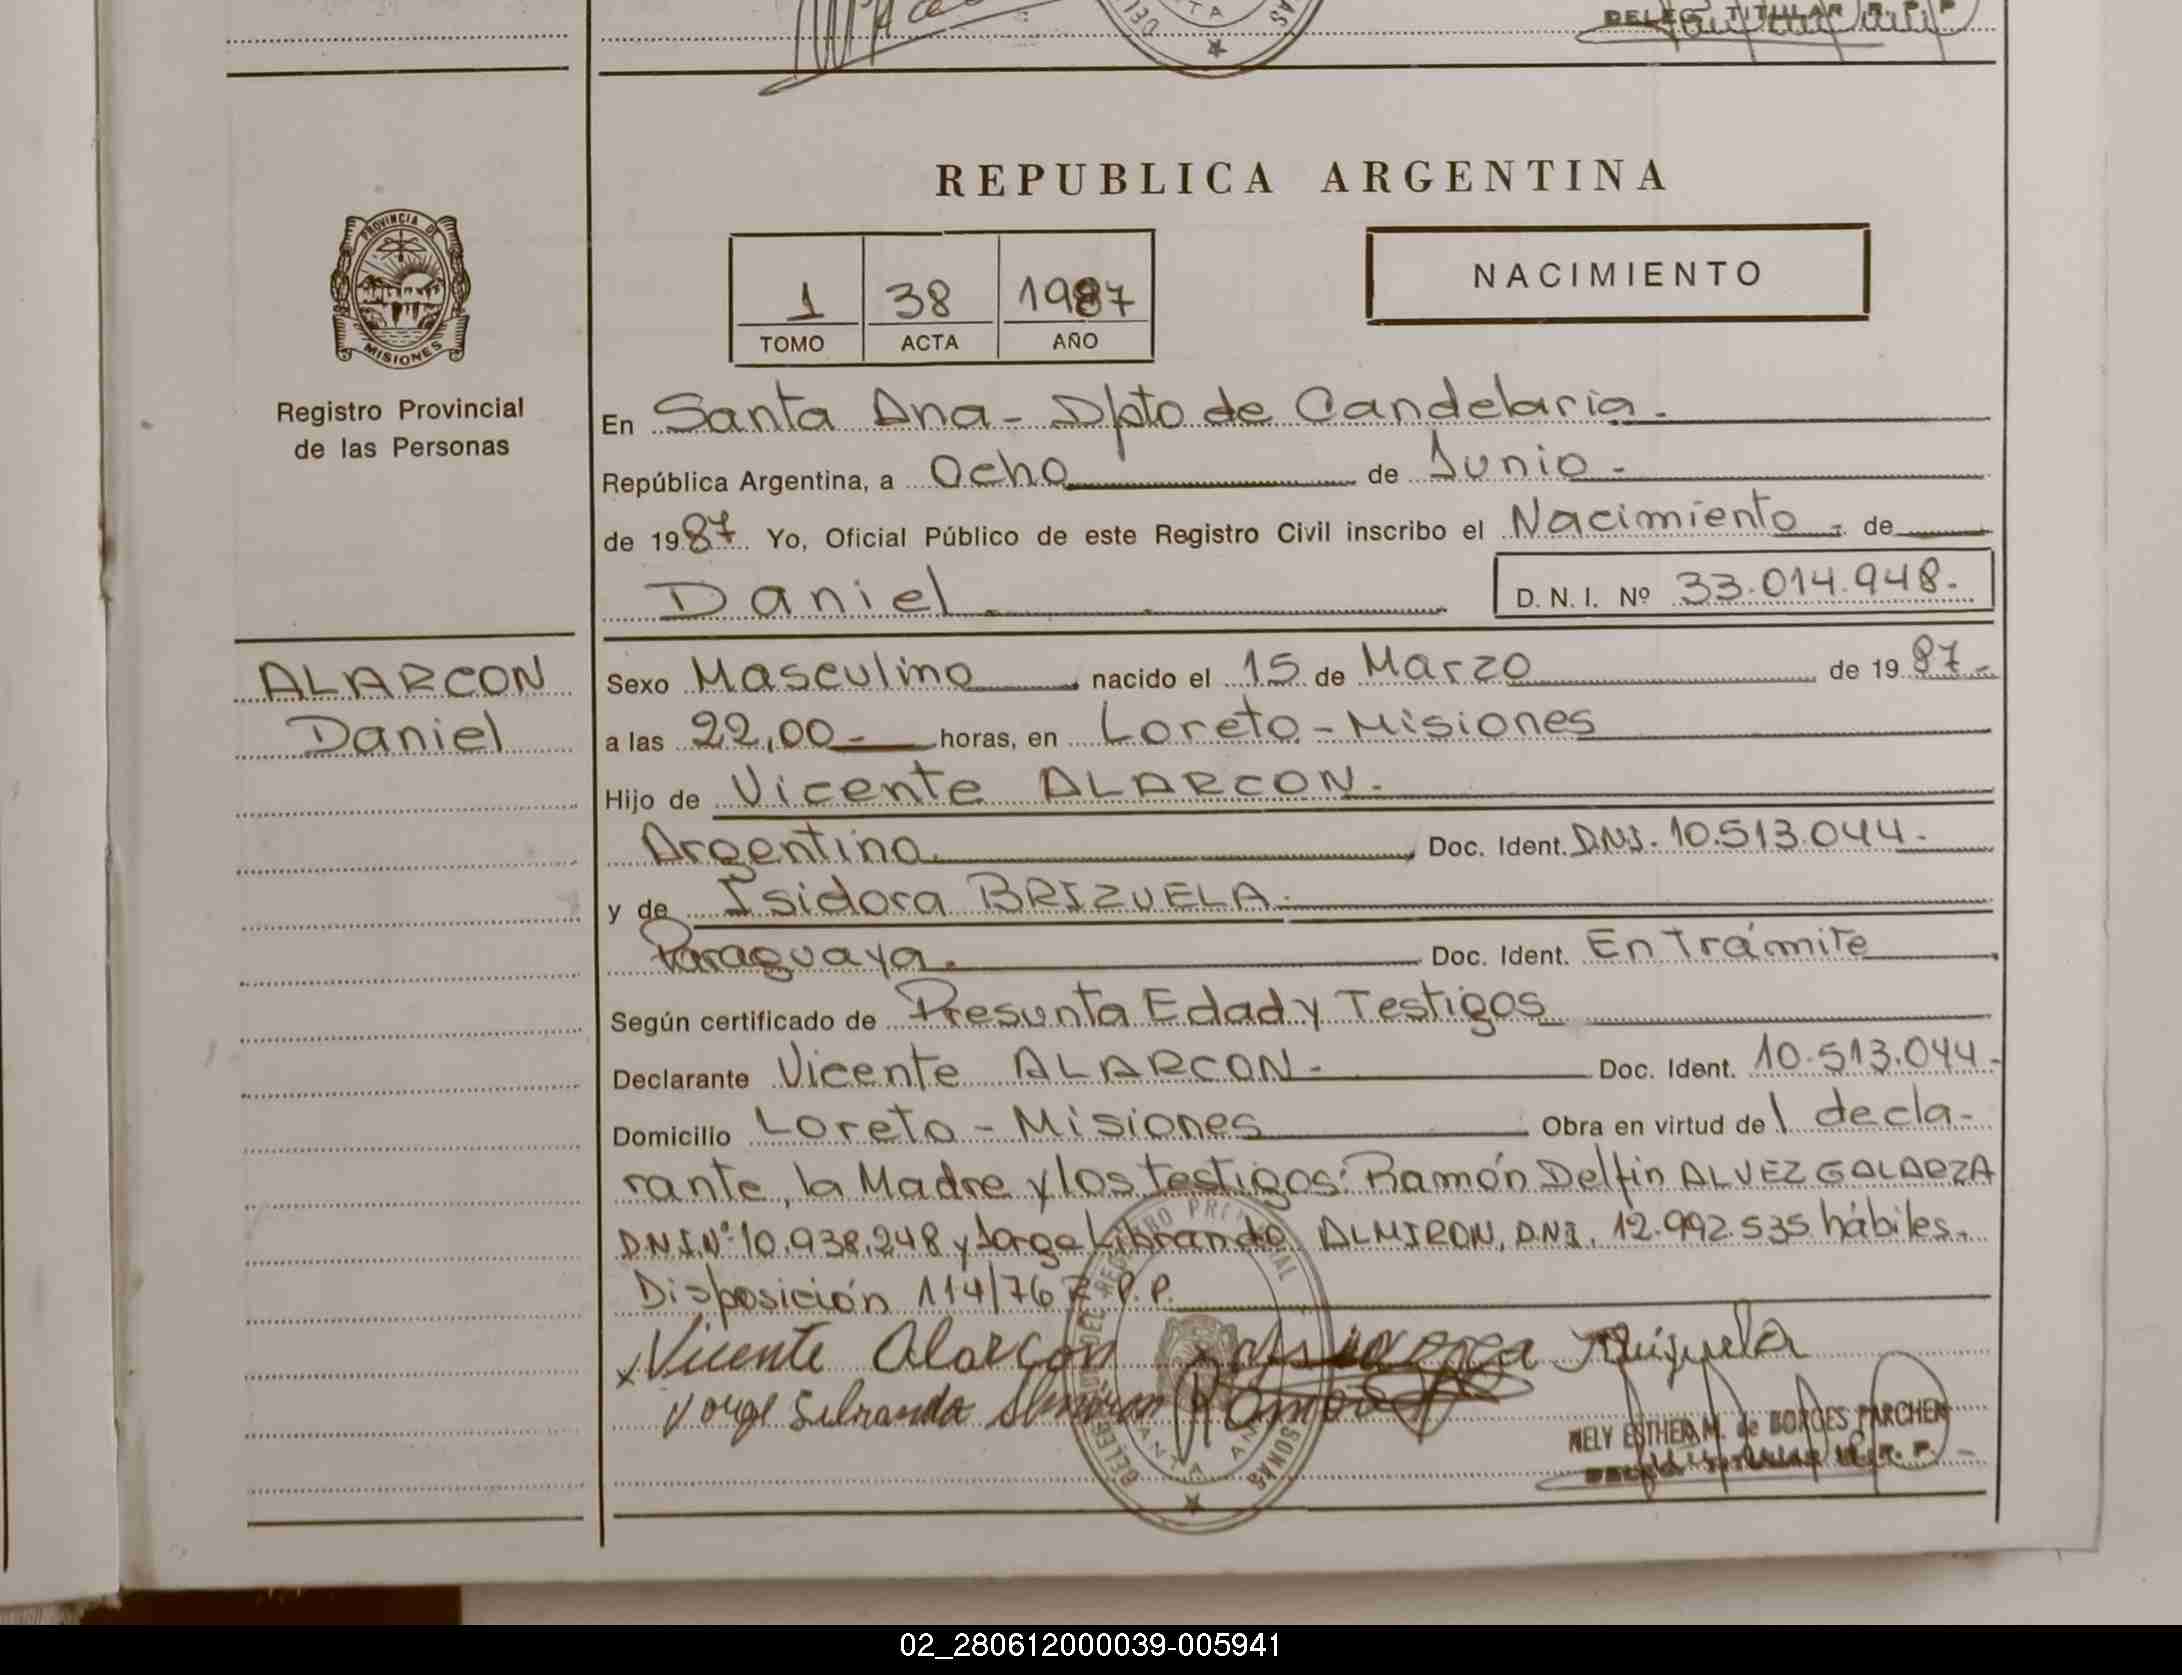 DELEG. TITULAR R. P. P.
REPUBLICA ARGENTINA
PROVINCIA DE
MISIONES
Registro Provincial
de las Personas
1 38 1987
TOMO ACTA AÑO
NACIMIENTO
En Santa Ana - Dpto de Candelaria.
República Argentina, a Ocho de Junio.-
de 1987. Yo, Oficial Público de este Registro Civil inscribo el Nacimiento.- de
Daniel. D. N. I. Nº 33.014.948.-
ALARCON
Daniel
Sexo Masculino nacido el 15 de Marzo de 1987.-
a las 22,00.- horas, en Loreto - Misiones
Hijo de Vicente ALARCON.-
Argentina. Doc. Ident. DNI. 10.513.044.-
y de Isidora BRIZUELA.-
Paraguaya. Doc. Ident. En Trámite
Según certificado de Presunta Edad y Testigos
Declarante Vicente ALARCON.- Doc. Ident. 10.513.044.-
Domicilio Loreto - Misiones Obra en virtud de l decla-
rante, la Madre y los testigos: Ramón Delfin ALVEZ GALARZA
DNI.Nº 10.938.248 y Jorge Librando ALMIRON, DNI. 12.992.535 hábiles.
Disposición 114/76 R.P.P.
x Vicente Alarcon
Jorge Librando Almiron Ramon
NELY ESTHER M. de BORGES PARCHEN
02_280612000039-005941